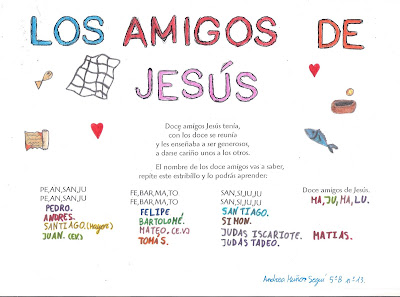 LOS AMIGOS DE
JESÚS
Doce amigos Jesús tenía,
con los doce se reunía
y les enseñaba a ser generosos,
a darse cariño unos a los otros.
El nombre de los doce amigos vas a saber,
repite este estribillo y lo podrás aprender:
PE,AN,SAN,JU
PE,AN,SAN,JU
PEDRO.
ANDRES.
SANTIAGO.(mayor)
JUAN. (EV.)
FE,BAR,MA,TO
FE,BAR,MA,TO
FELIPE
BARTOLOMÉ.
MATEO. (E.V)
TOMÁS.
SAN,SI,JU,JU
SAN,SI,JU,JU
SANTIAGO.
SIMON.
JUDAS ISCARIOTE.
JUDAS TADEO.
Doce amigos de Jesús.
MA,JU,MA,LU.
MATIAS.
Andrea Muñoz Seguí 5ºB nº19.